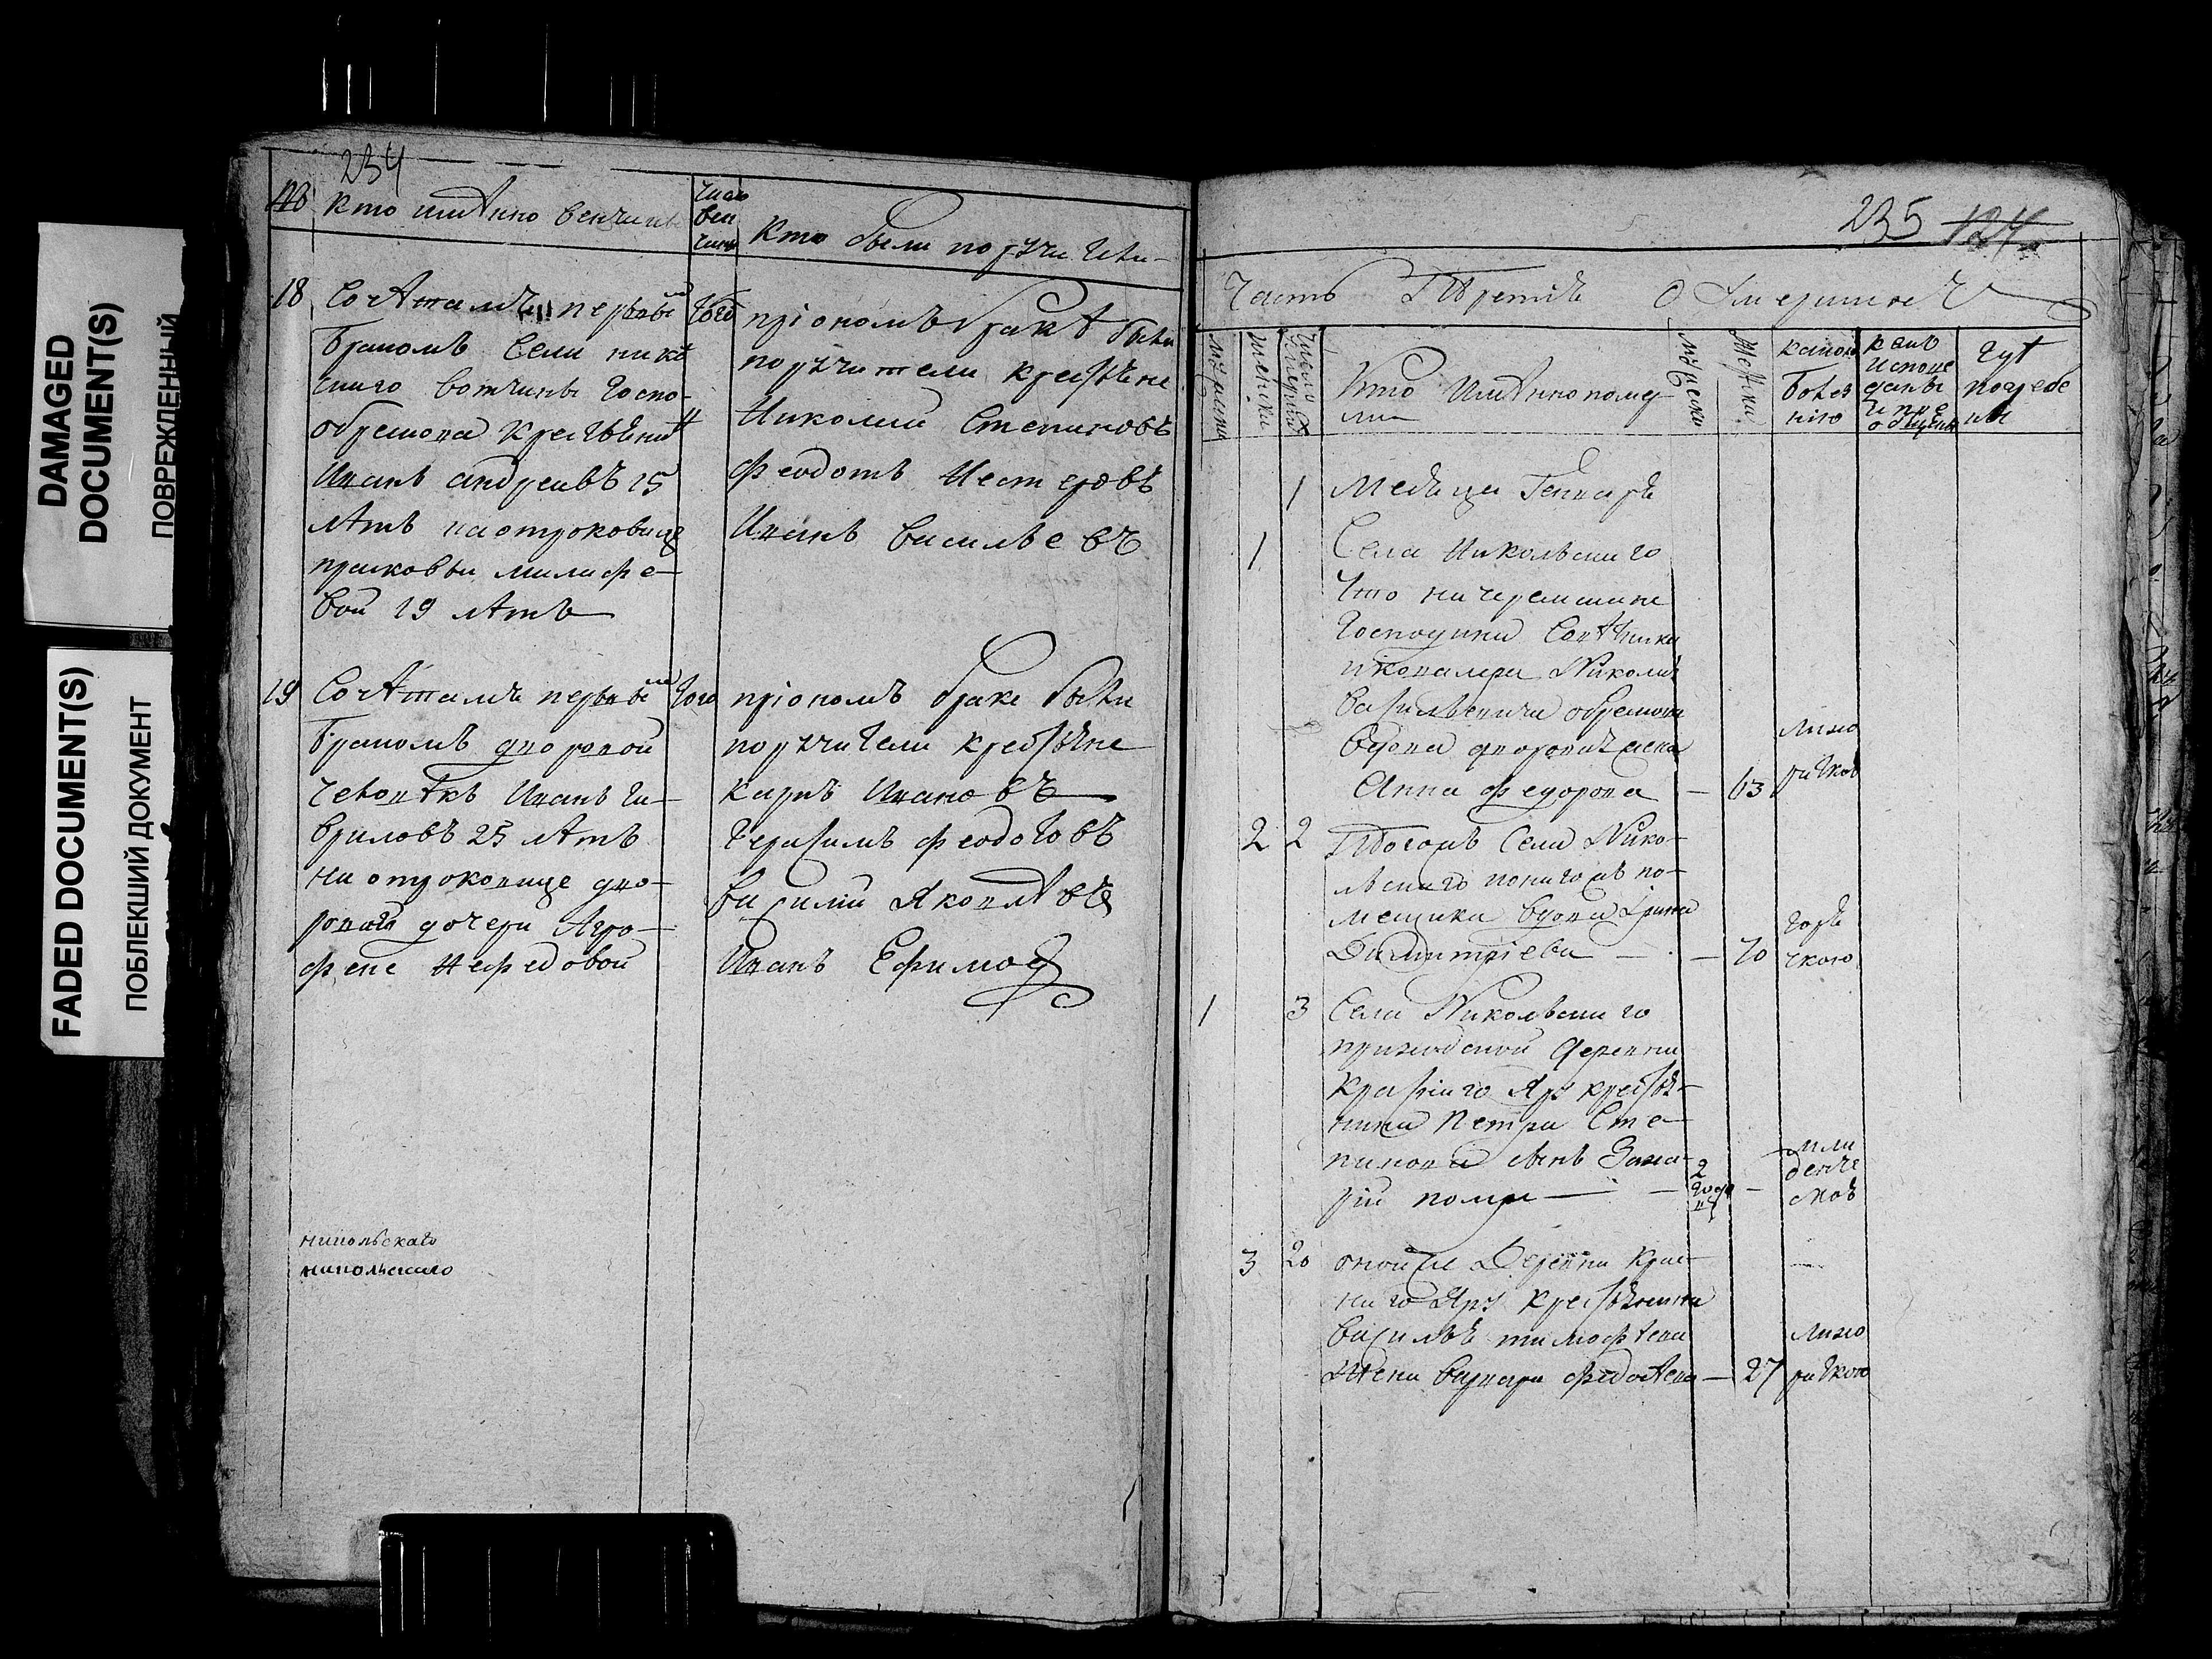 DAMAGED
DOCUMENT(S)
ПОВРЕЖДЕННЫЙ
FADED DOCUMENT(S)
ПОБЛЕКШИЙ ДОКУМЕНТ
234
кто имѣнно венчаны
число
вен
чаны
Кто были поручители
18
Сочѣтались первымъ
бракомъ села николь
скаго вотчины госпо-
Иванъ андреивъ 25
лѣтъ на отроковице
19 лѣтъ
Того
при ономъ бракѣ были
поручители крестьяне
Николай Степановъ
феодотъ Нестеровъ
Иванъ васильевъ
19
Сочѣтались первымъ
бракомъ дворовой
человѣкъ Иванъ га-
вриловъ 25 лѣтъ
на отроковице дво-
ровой дочери Агро-
фене Нефедовой
Того
при ономъ браке были
поручители крестьяне
карпъ Ивановъ
Герасимъ феодотовъ
василий Яковлѣвъ
Иванъ Ефимов
никольскаго
никольскаго
235 124
Часть Третія О Умершихъ
мужеска
женска
число умерших
Кто Имѣнно помер
ли
мужеска
Женска
какою
болез
нію
кемъ
Испове
даны
и прі
общены
гдѣ
погребе
ны
1 Месеца Генваря
1 Села Никольскаго
что на черемшане
Господина Совѣтника
и кавалера Николая
Васильевича
вдова дворовая жена
Анна федорова — 63
лихо
радкой
2 2 Тогожъ Села Нико-
льскаго тогожъ по-
мещика вдова Ирина
Димитріева — 70
горя
чкою
1 3 Села Никольскаго
приходской деревни
Краснаго Яру крестья-
нина Петра Сте-
панова сынъ Заха-
рій помре —
2
года
мла
денче
ской
3 20 оной же Деревни Крас-
наго Яру крестьянина
василья тимофѣева
Жена варвара федотѣева — 27
лихо
радкою